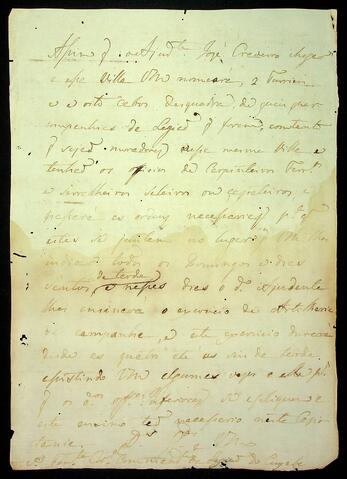 Asim q̃ o Ajud.e José Cordeiro chegar
a essa Villa VM nomeará, 2 Furrieis
e oito Cabos desquadra, de quaes quer
companhias da Legião q̃ forem, comtanto
q̃ sejaõ moradores nessa mesma Villa e
tenhaõ os officios de Carpinteiros Ferr.os
e Serralheiros seleiros ou
as ordens necessarias p.a q̃
estes se juntem no lugar q̃ VM lhes
indicar todos os Domingos e dias
santos, de tarde e nesses dias o d.o Ajudante
lhes ensinará o exercicio de Artilharia
de campanha, e este exercicio durará
desde as quatro the as seis da tarde.
asistindo VM algumas vezes a elle p.a
q̃ os d.os officiaes inferiores se apliquem a
este ensino taõ necessario nesta Capi
tania. D.s g.e a VM